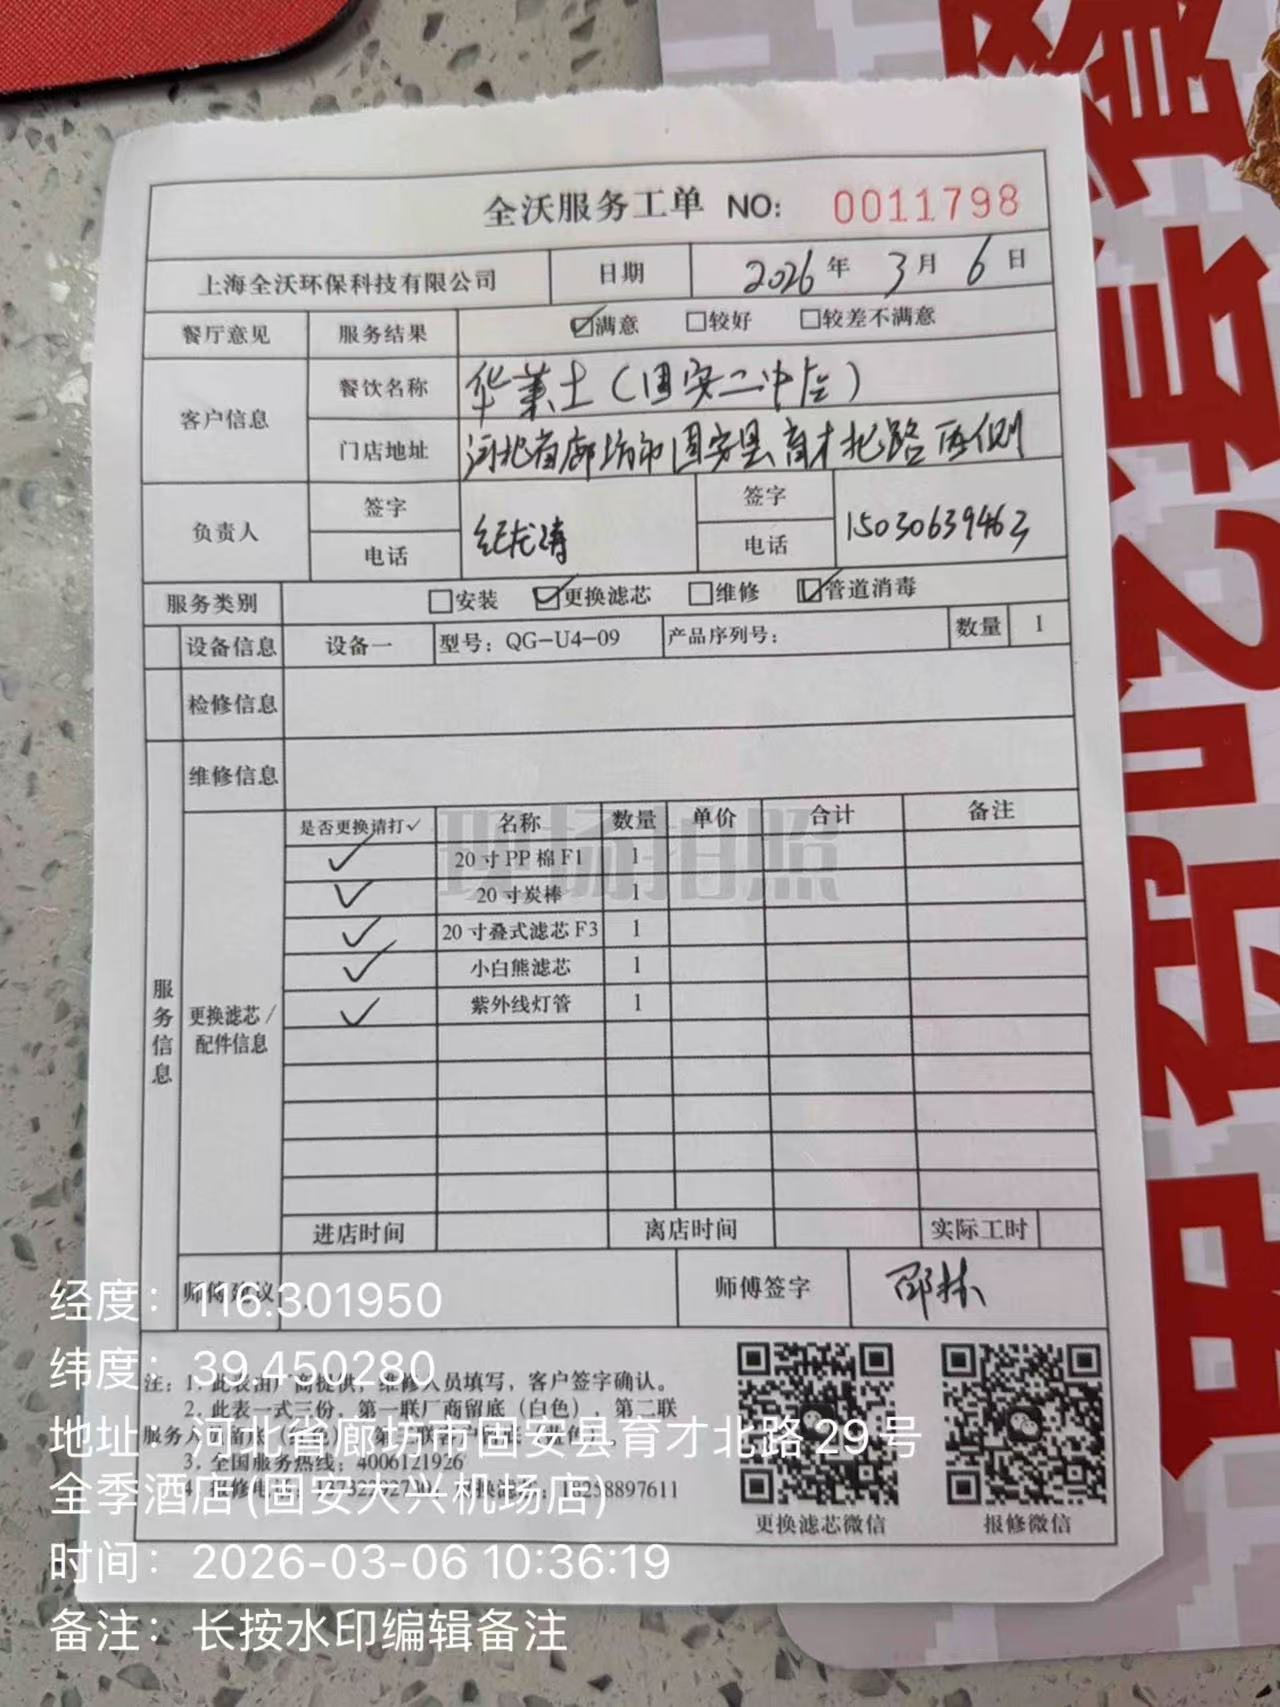 全沃服务工单 NO: 0011798
上海全沃环保科技有限公司 日期 2026年 3月 6日
餐厅意见 服务结果 ☑满意 □较好 □较差不满意
客户信息 餐饮名称 华莱士(固安二中店)
门店地址 河北省廊坊市固安县育才北路西侧
负责人 签字 电话 纪龙涛 签字 电话 15030639463
服务类别 □安装 ☑更换滤芯 □维修 ☑管道消毒
设备信息 设备一 型号: QG-U4-09 产品序列号: 数量 1
检修信息
维修信息
服务信息
更换滤芯/配件信息
是否更换请打✓ 名称 数量 单价 合计 备注
✓ 20寸PP棉F1 1
✓ 20寸炭棒 1
✓ 20寸叠式滤芯F3 1
✓ 小白熊滤芯 1
✓ 紫外线灯管 1
进店时间 离店时间 实际工时
师傅建议 师傅签字 邵林
注: 1. 此表由厂商提供, 维修人员填写, 客户签字确认。
2. 此表一式三份, 第一联厂商留底(白色), 第二联
服务人
3. 全国服务热线: 4006121926
4. 报修电话: 换滤芯: 18258897611
更换滤芯微信 报修微信
现场拍照
经度: 116.301950
纬度: 39.450280
地址: 河北省廊坊市固安县育才北路29号
全季酒店(固安大兴机场店)
时间: 2026-03-06 10:36:19
备注: 长按水印编辑备注